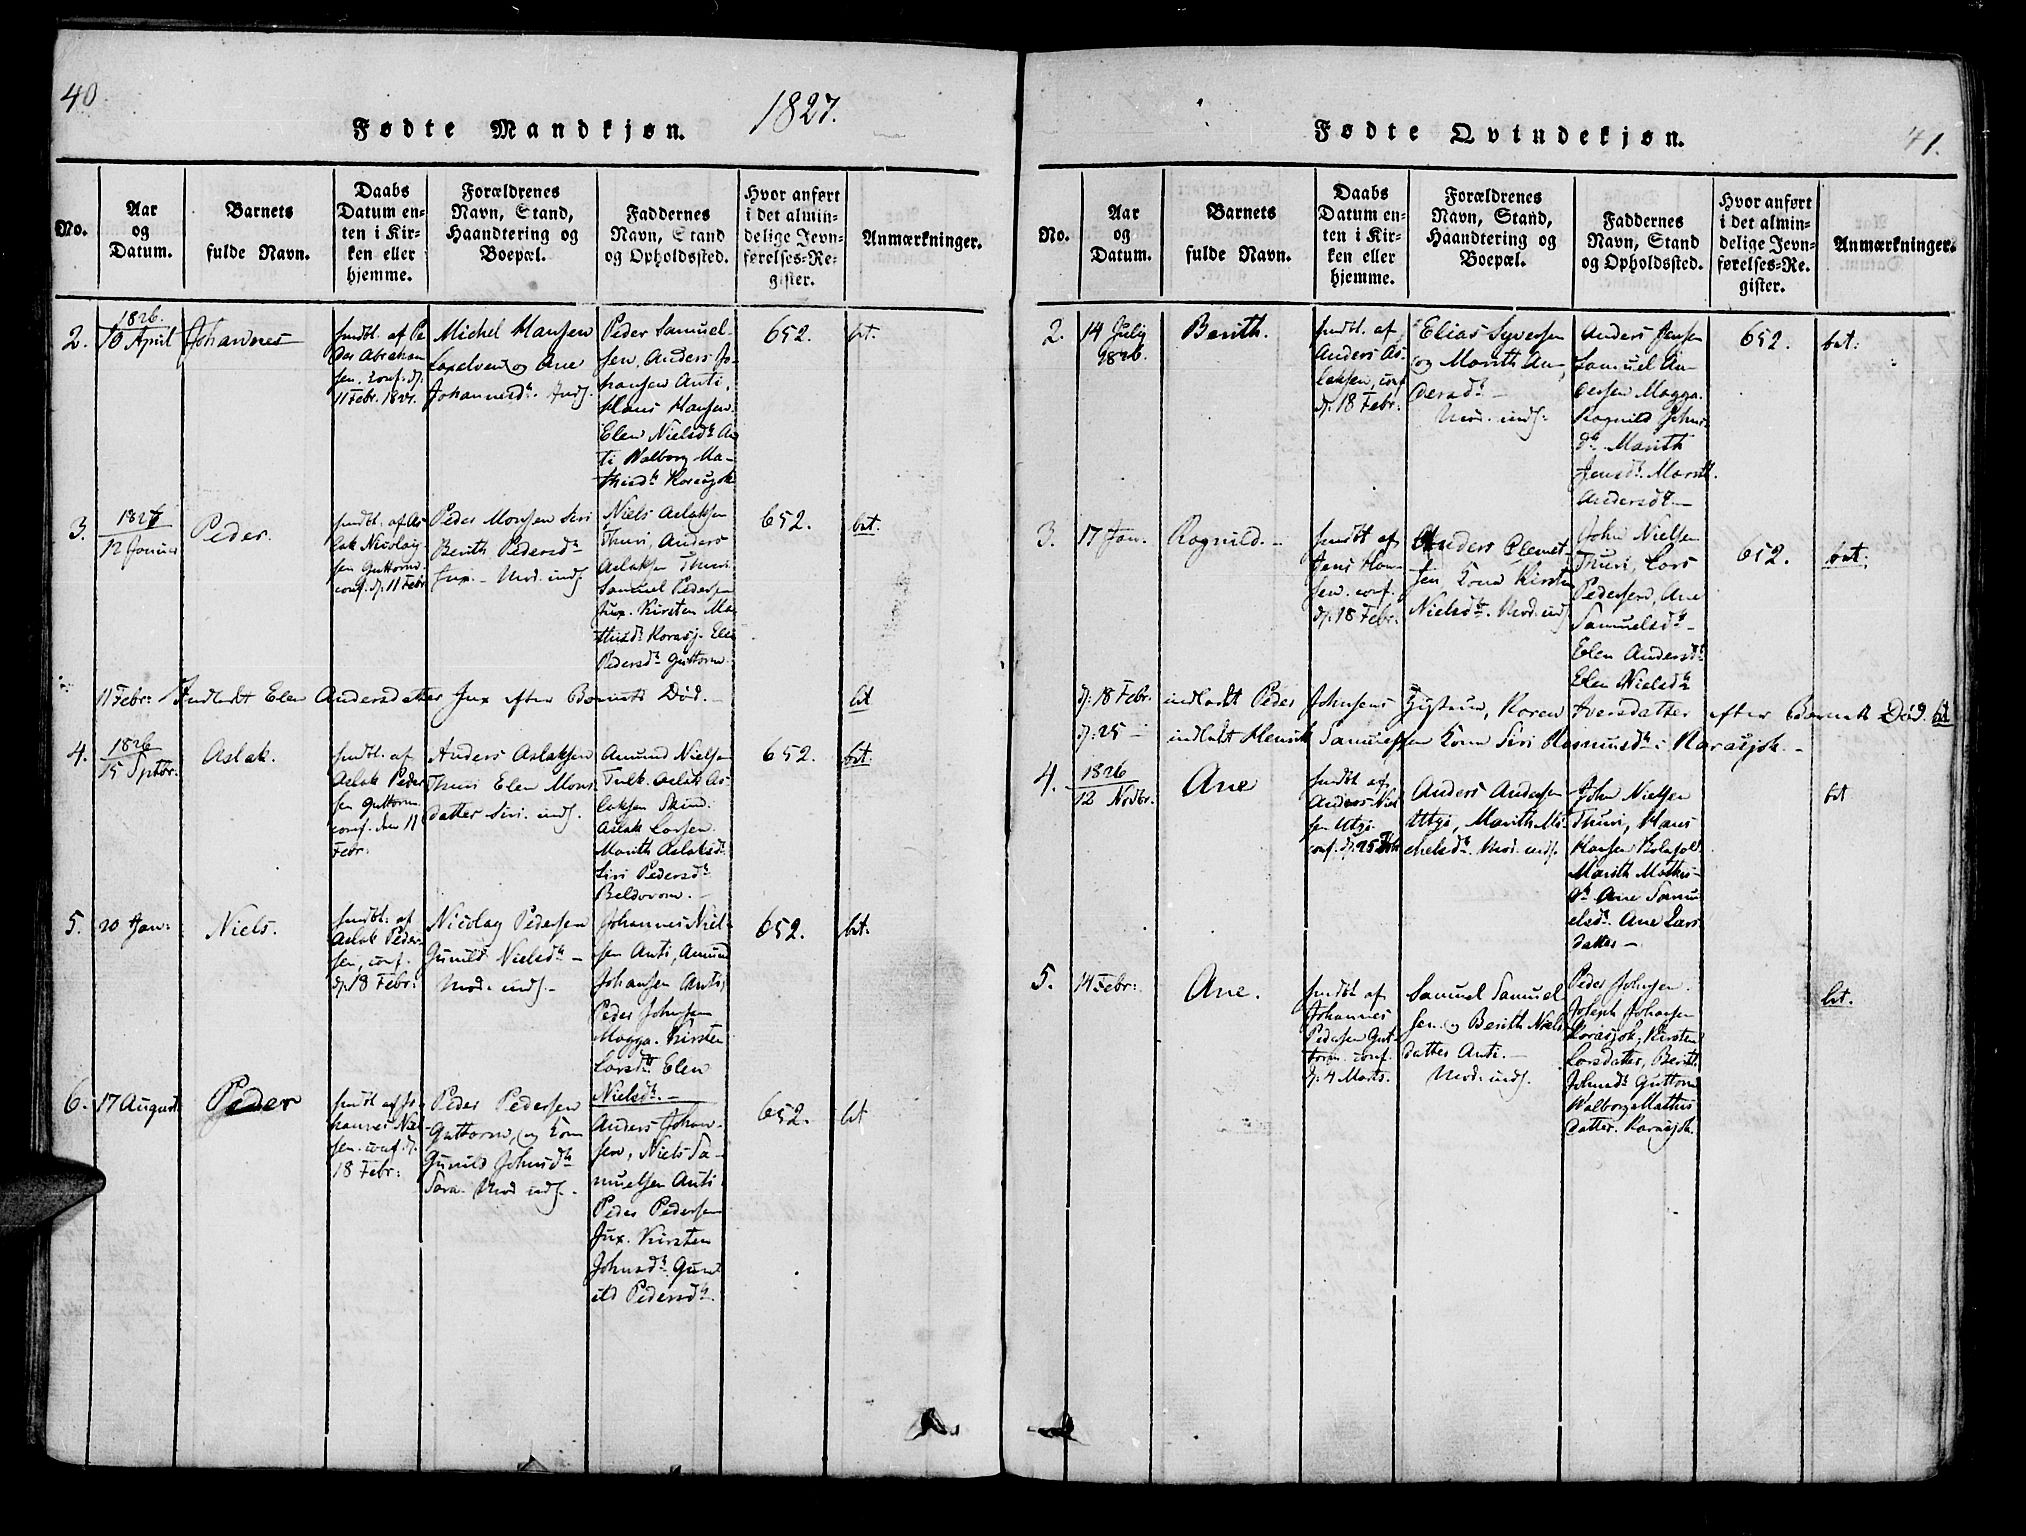 40.
1827.
Fødte Mandkjøn.
No.
Aar
og
Datum.
Barnets
fulde Navn.
Daabs
Datum en-
ten i Kir-
ken eller
hjemme.
Forældrenes
Navn, Stand,
Haandtering og
Boepæl.
Faddernes
Navn, Stand
og Opholdssted.
Hvor anført
i det almin-
delige Jevn-
førelses-Re-
gister.
Anmærkninger.
2.
1826.
10 April
Johannes
hmdbt. af Pe
der Abraham
sen. conf. d.
11 Febr. 1827.
Michel Hansen
og Ane
Johannesd. Inds.
Peder Samuel-
sen, Anders Jo-
hansen Anti,
Hans Hansen.
Elen Nielsdr An
ti Walborg Ma-
thisdr Korasjok
652.
bet.
3.
1827
12 Januar
Peder.
hmdbt. af As
lak Nicolay
sen Guttorm.
conf. d. 11 Febr
Peder Monsen Siri
Berith Pedersdr
Jux. - Mod. inds.
Niels Aslaksen
Thuri, Anders
Aslaksen Thuri
Samuel Pedersen
Jux. Kirsten Ma-
thisdr Korasj. Elen
Pedersdr Guttorm.
652.
bet.
11 Febr: Indledt Elen Andersdatter Jux efter Barnets Død. -
bet
4.
1826
15 Sptbr.
Aslak.
hmdbt. af
Aslak Peder
sen Guttorm
conf. den 11
Febr.
Anders Aslaksen
Thuri Elen Mons
datter Siri. inds.
Amund Nielsen
Tulk. Aslak As
laksen Skind.
Aslak Larsen.
Marith Aslaksdr
Siri Pedersdr
Beldovom. -
652.
bet.
5.
20 Jan:
Niels.
hmdbt. af
Aslak Peder-
sen, conf.
d. 18 Febr:
Nicolay Pedersen
Gunild Nielsdr -
Mod. inds. -
Johannes Niel-
sen Anti, Amund
Johansen Anti,
Peder Johnsen
Magga. Kirsten
Larsdr Elen
Nielsdr. -
652.
bet.
6.
17 August
Peder
hmdbt af Jo-
hannes Niel
sen. conf. d.
18 Febr:
Peder Pedersen
Guttorm, og Kone
Gunild Johnsdr
Sara. Mod inds. -
Anders Johan-
sen, Niels Sa-
muelsen Anti.
Peder Pedersen
Jux. Kirsten
Johnsdr. Gun
ild Pedersdr.
652.
bet
41.
Fødte Qvindekjøn.
No.
Aar
og
Datum.
Barnets
fulde Navn.
Daabs
Datum en-
ten i Kir-
ken eller
hjemme.
Forældrenes
Navn, Stand,
Haandtering og
Boepæl.
Faddernes
Navn, Stand
og Opholdssted.
Hvor anført
i det almin-
delige Jevn-
førelses-Re-
gister.
Anmærkninger.
2.
14 July
1826.
Berith.
hmdbt. af
Anders As-
laksen, conf
d. 18 Febr:
Elias Syversen
og Marith An-
dersdr -
Mod. inds.
Anders Jensen
Samuel An-
dersen Magga.
Ragnild Johns
dr Marith
Jensdr. Marith
Andersdr -
652.
bet:
3.
17 Jan.
Ragnild. -
hmdbt af
Jens Han-
sen. conf.
d. 18 Febr.
Anders Clemet-
sen, Kone Kirsten
Nielsdr. Mod. inds
John Nielsen
Thuri, Lars
Pedersen, Ane
Samuelsdr -
Elen Andersdr
Elen Nielsdr
652.
bet.
d. 18 Febr. indledt Peder Johnsens Hustru, Karen Iversdatter efter Barnets Død. bet
d. 25 - indledt Henrik Samuelsen Kone Siri Rasmusdr i Karasjok. -
4.
1826
12 Novbr.
Ane
hmdbt af
Anders Niel
sen Utsi.
conf. d. 25 Feb
Anders Andersen
Utsi, Marith Mi-
chelsdr. Mod. inds.
John Nielsen
Thuri, Hans
Hansen
Marith Mathis-
dr Ane Samu
elsdr. Ane Lars
datter -
bet
5.
14 Febr:
Ane.
hmdbt. af
Johannes
Pedersen Gut-
torm. conf.
d. 4 Marts.
Samuel Samuel
sen. og Berith Niels
datter Anti. -
Mod. inds.
Peder Johnsen.
Joseph Johansen
Korasjok, Kirsten
Larsdatter, Berith
Johnsdr Guttorm
Walborg Mathis
datter. Karasjok.
bet.